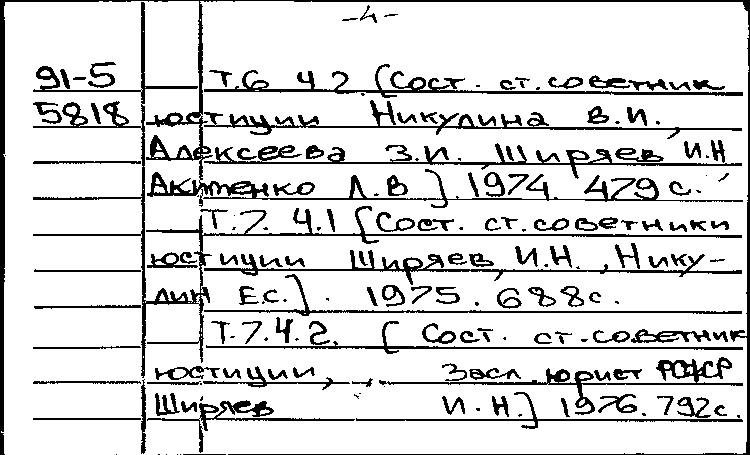 -4-
91-5 Т.6 Ч2 [Сост. ст.советник
5818 юстиции Никулина В.И.,
Алексеева З.И. Ширяев И.Н
Акименко Л.В]. 1974. 479 с.
Т.7. Ч.1 [Сост. ст.советники
юстиции Ширяев, И.Н., Нику-
лин Е.С.]. 1975. 688с.
Т.7.Ч.2. [Сост. ст.советник
юстиции, Засл. юрист РСФСР
Ширяев И.Н.] 1976. 792с.